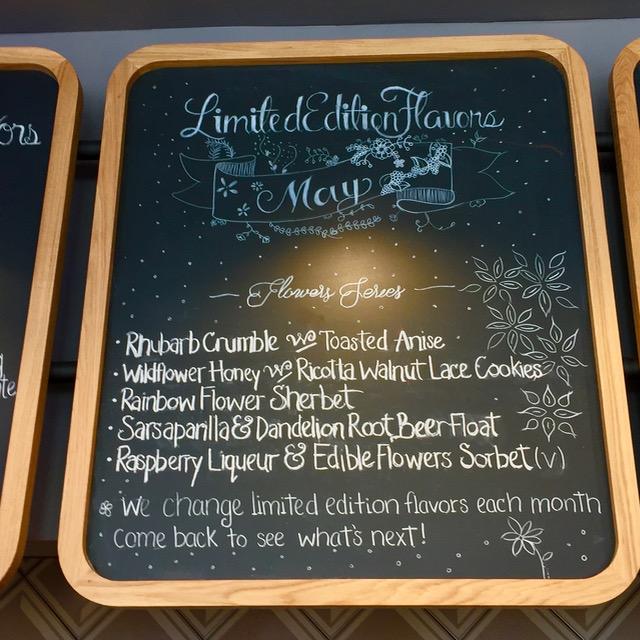 Limited Edition Flavors
May
Flowers Series
· Rhubarb Crumble w/ Toasted Anise
· Wildflower Honey w/ Ricotta Walnut Lace Cookies
· Rainbow Flower Sherbet
· Sarsaparilla & Dandelion Root Beer Float
· Raspberry Liqueur & Edible Flowers Sorbet (v)
We change limited edition flavors each month
come back to see what's next!